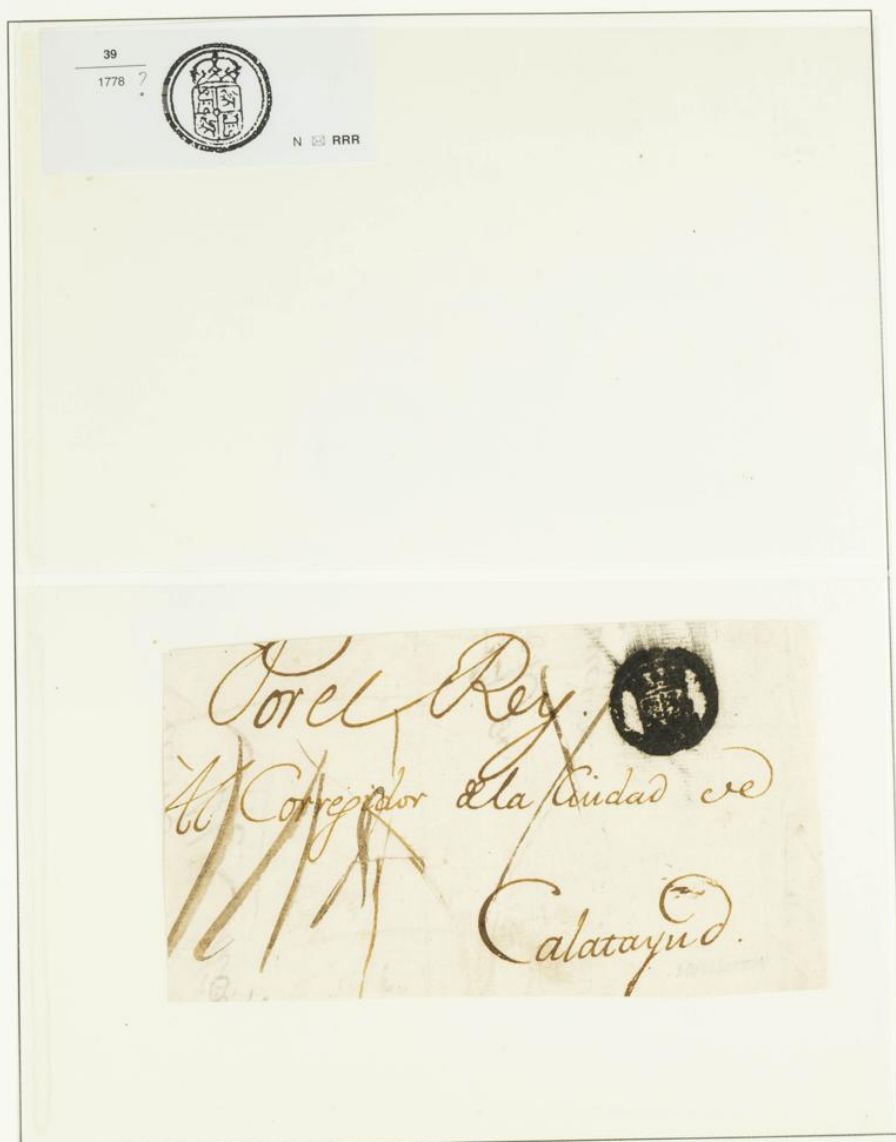 39
1778 ?
N ✉ RRR
Por el Rey.
Al Corregidor dela Ciudad de
Calatayud.